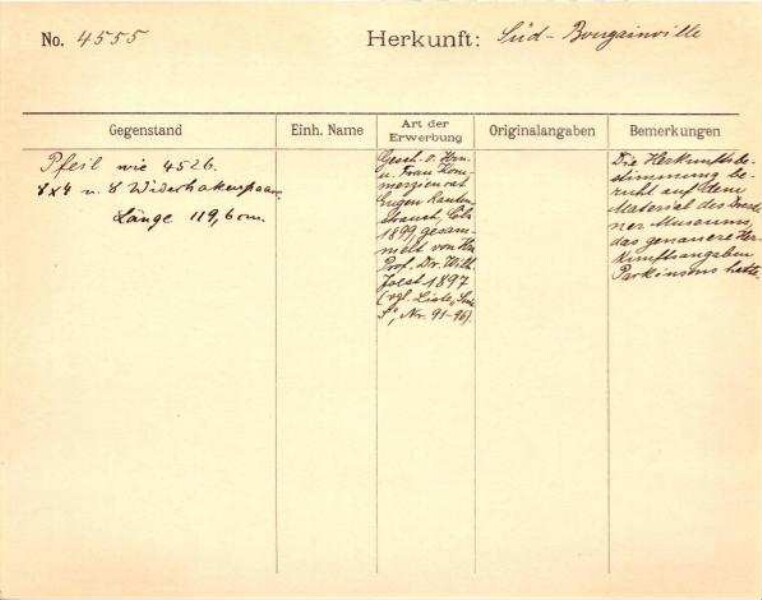 No. 4555
Herkunft: Süd-Bougainville
Gegenstand
Einh. Name
Art der
Erwerbung
Originalangaben
Bemerkungen
Pfeil wie 4526.
8x4 u. 8 Widerhakenpaare,
Länge 119,6 cm.
Gesch. v. Hrn.
u. Frau Kom-
merzienrat
Eugen Rauten-
strauch, Cöln
1899, gesam-
melt von Hrn
Prof. Dr. Wilh.
Joest 1897
(vgl. Liste,
Nr. 91-96).
Die Herkunftsbe-
stimmung be-
ruht auf dem
Material des Dresde-
ner Museums,
das genauere Her-
kunftsangaben
Parkinsons hatte.